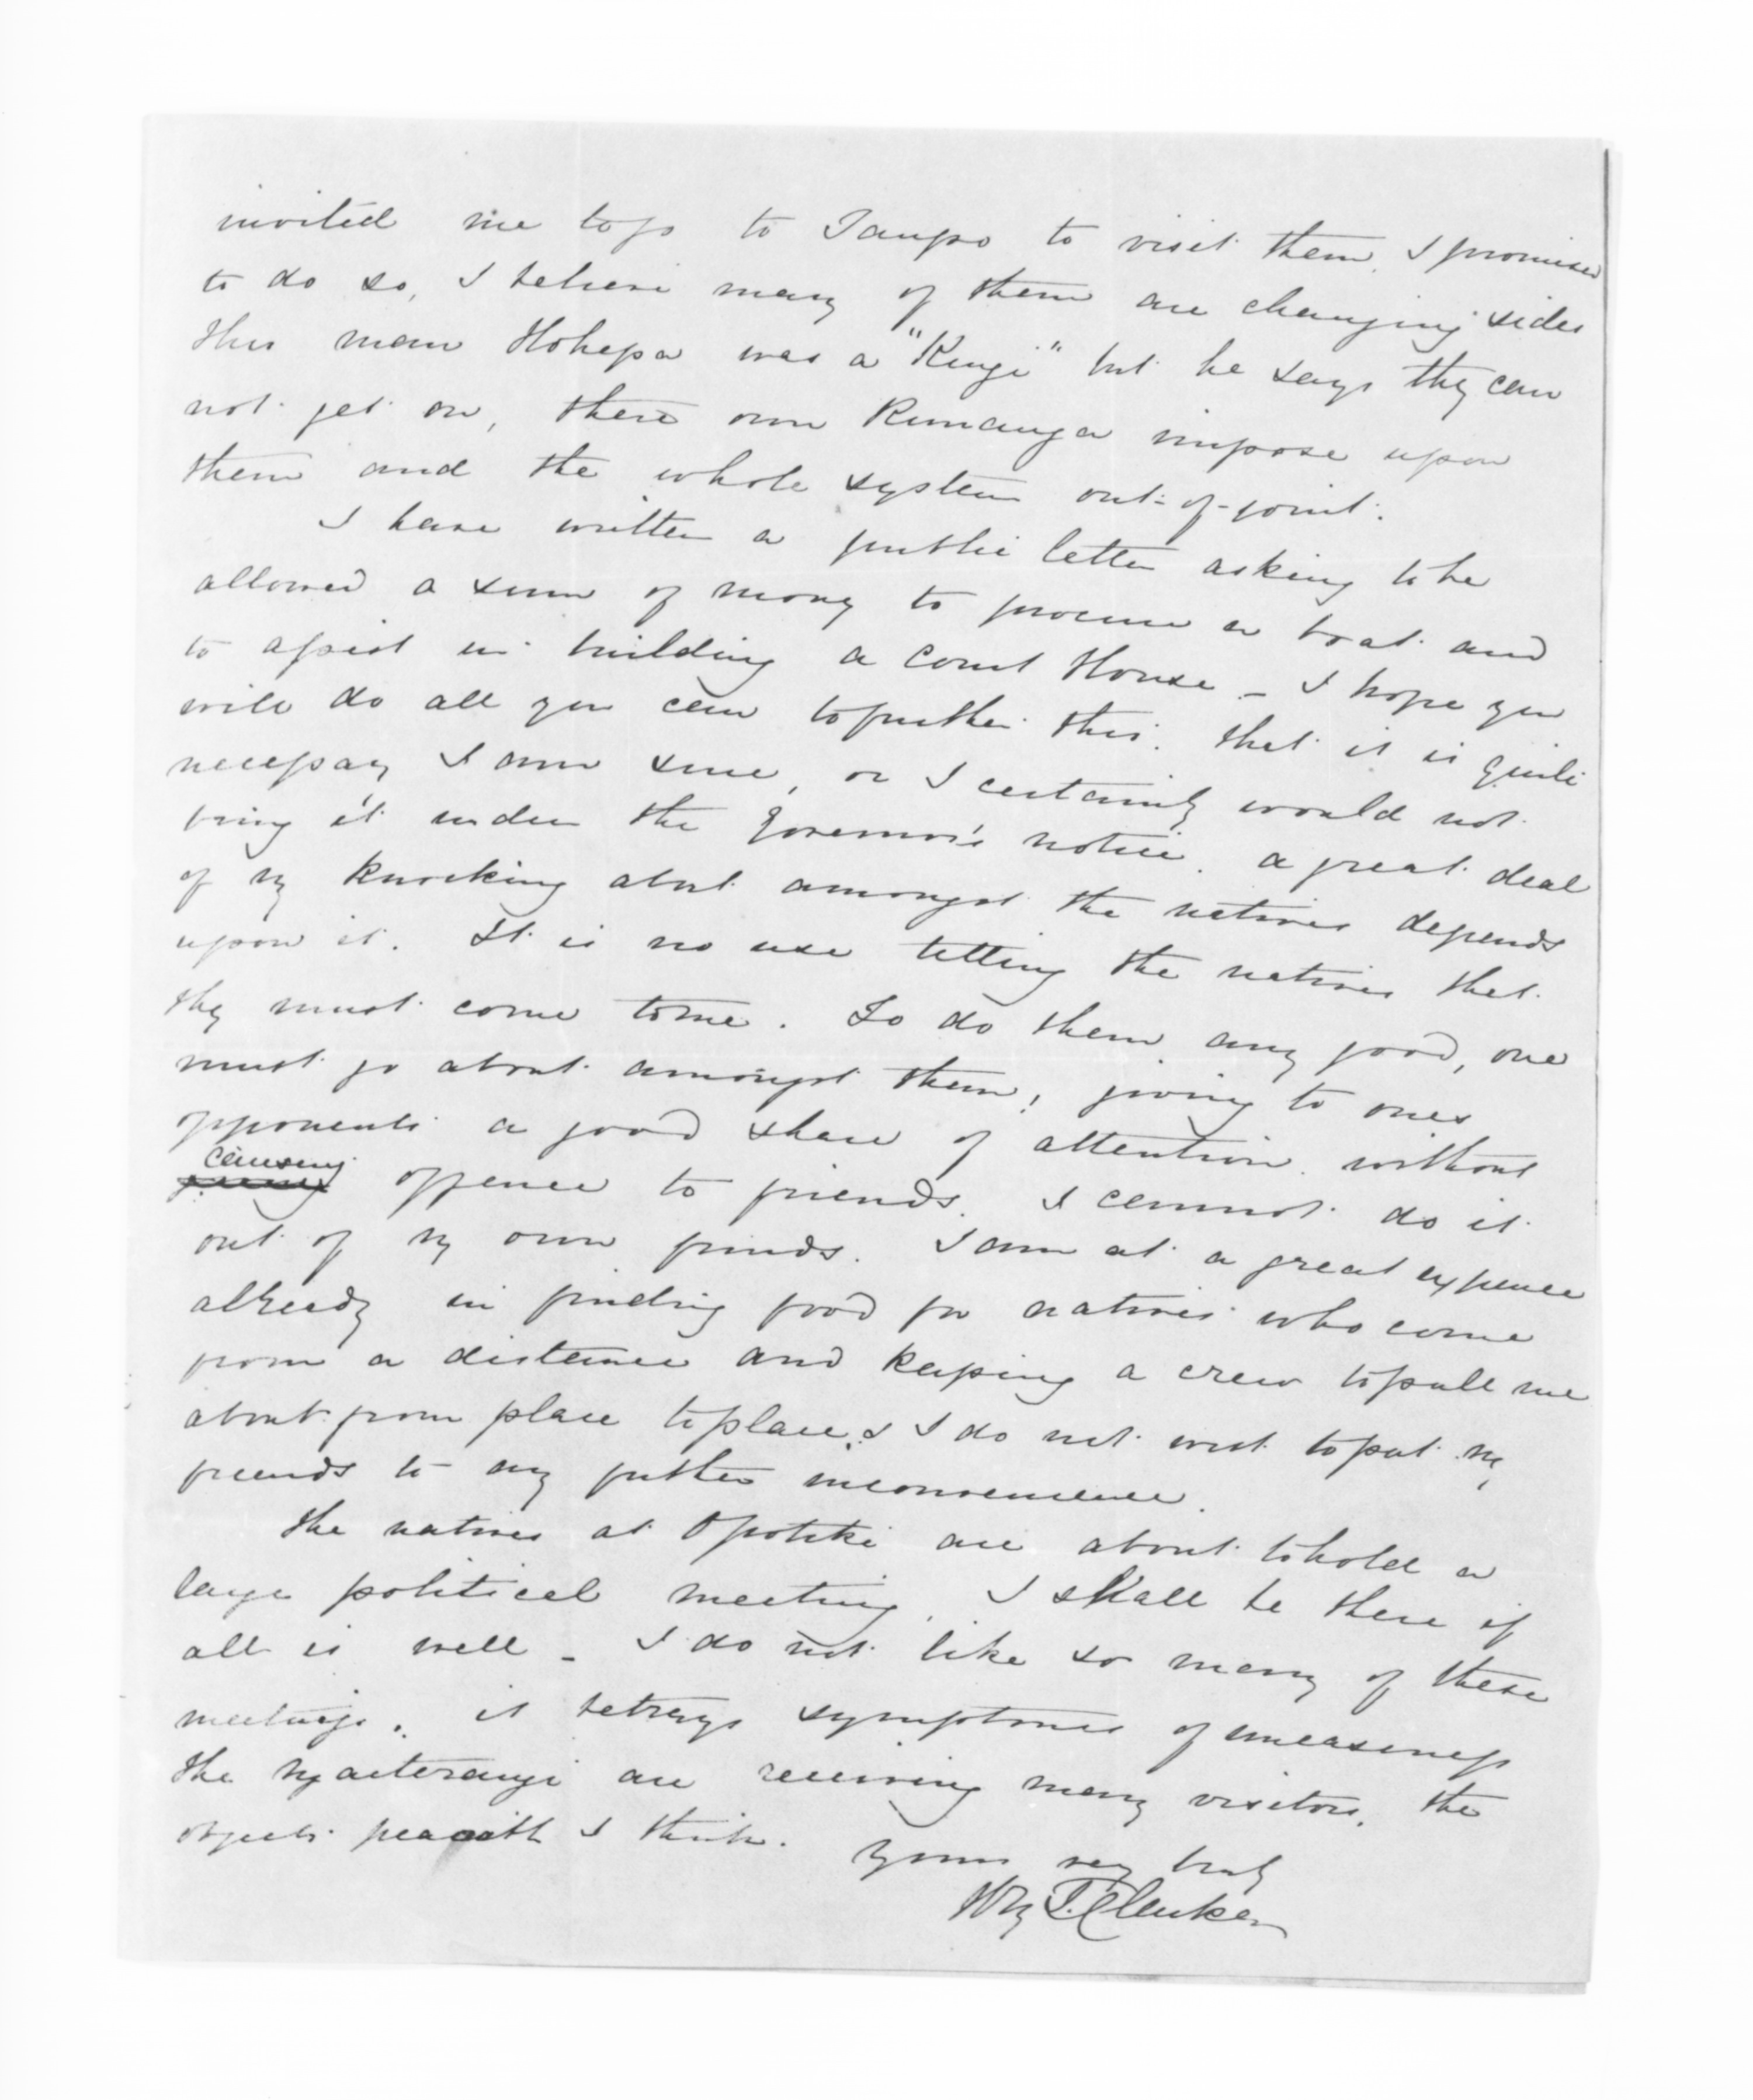 invited me to go to Taupo to visit them, I promised
to do so, I believe many of them are changing sides
this man Hohepa was a "Kingi" but he says they can
not get on, there own Runanga impose upon
them and the whole system out-of-joint.
I have written a public letter asking to be
allowed a sum of money to procure a boat and
to assist in building a Court House - I hope you
will do all you can to further this. that it is quite
necessary I am sure, or I certainly would not
bring it under the Governor's notice. a great deal
of my knocking about amongst the natives depends
upon it. It is no use telling the natives that
they must come to me. To do them any good, one
must go about amongst them, giving to ones
opponents a good share of attention without
causing
offence to friends. I cannot do it
out of my own funds. I am at a great expence
already in finding food for natives who come
from a distance and keeping a crew to pull me
about from place to place. & I do not want to put my
friends to any further inconvenience.
The natives at Opotiki are about to hold a
large political meeting, I shall be there if
all is well - I do not like so many of these
meetings. it betrays symptoms of uneasiness
the Ngaiterangi are receiving many visitors. the
objects I think.
Yours very truly
Hy T. Clarke